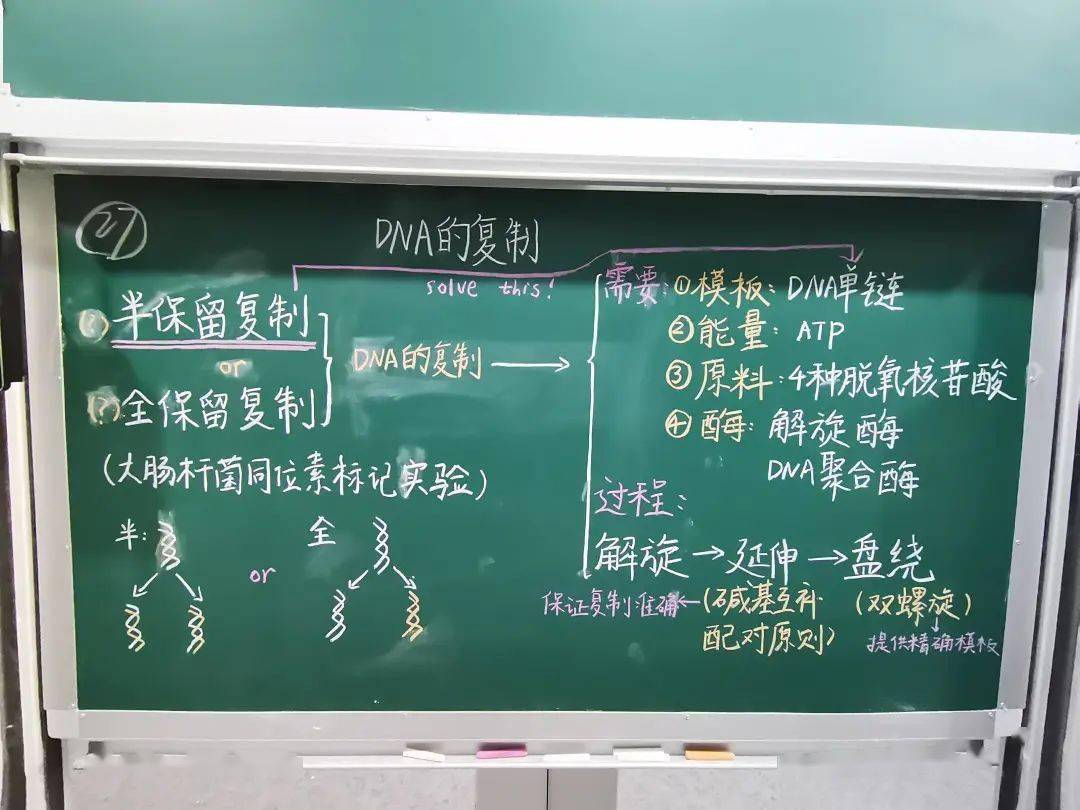 27
DNA的复制
solve this!
(?) 半保留复制
or
(?) 全保留复制
(大肠杆菌同位素标记实验)
半:
or
全
DNA的复制
需要: ①模板: DNA单链
②能量: ATP
③原料: 4种脱氧核苷酸
④酶: 解旋酶
DNA聚合酶
过程:
解旋→延伸→盘绕
保证复制准确←(碱基互补
配对原则)
(双螺旋)
提供精确模板